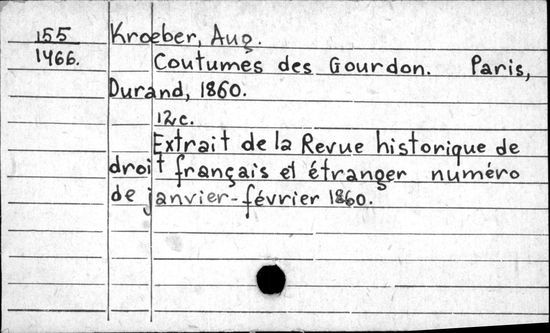 155 Kroeber, Aug.
1466. Coutumes des Gourdon. Paris,
Durand, 1860.
12c.
Extrait de la Revue historique de
droit français et étranger numéro
de janvier-février 1860.